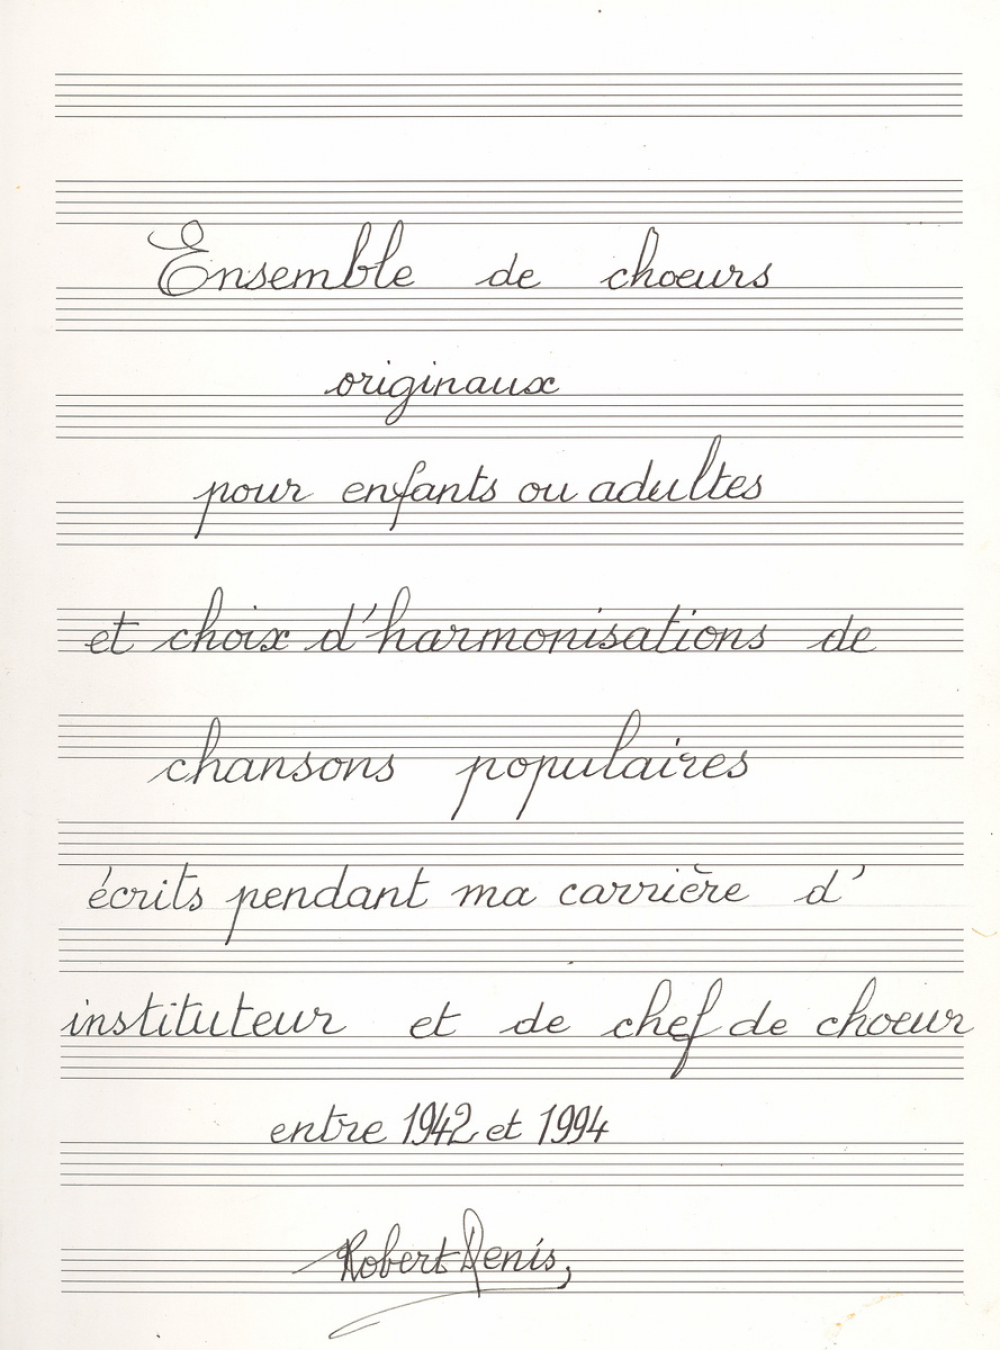 Ensemble de choeurs
originaux
pour enfants ou adultes
et choix d'harmonisations de
chansons populaires
écrits pendant ma carrière d'
instituteur et de chef de choeur
entre 1942 et 1994
Robert Denis,